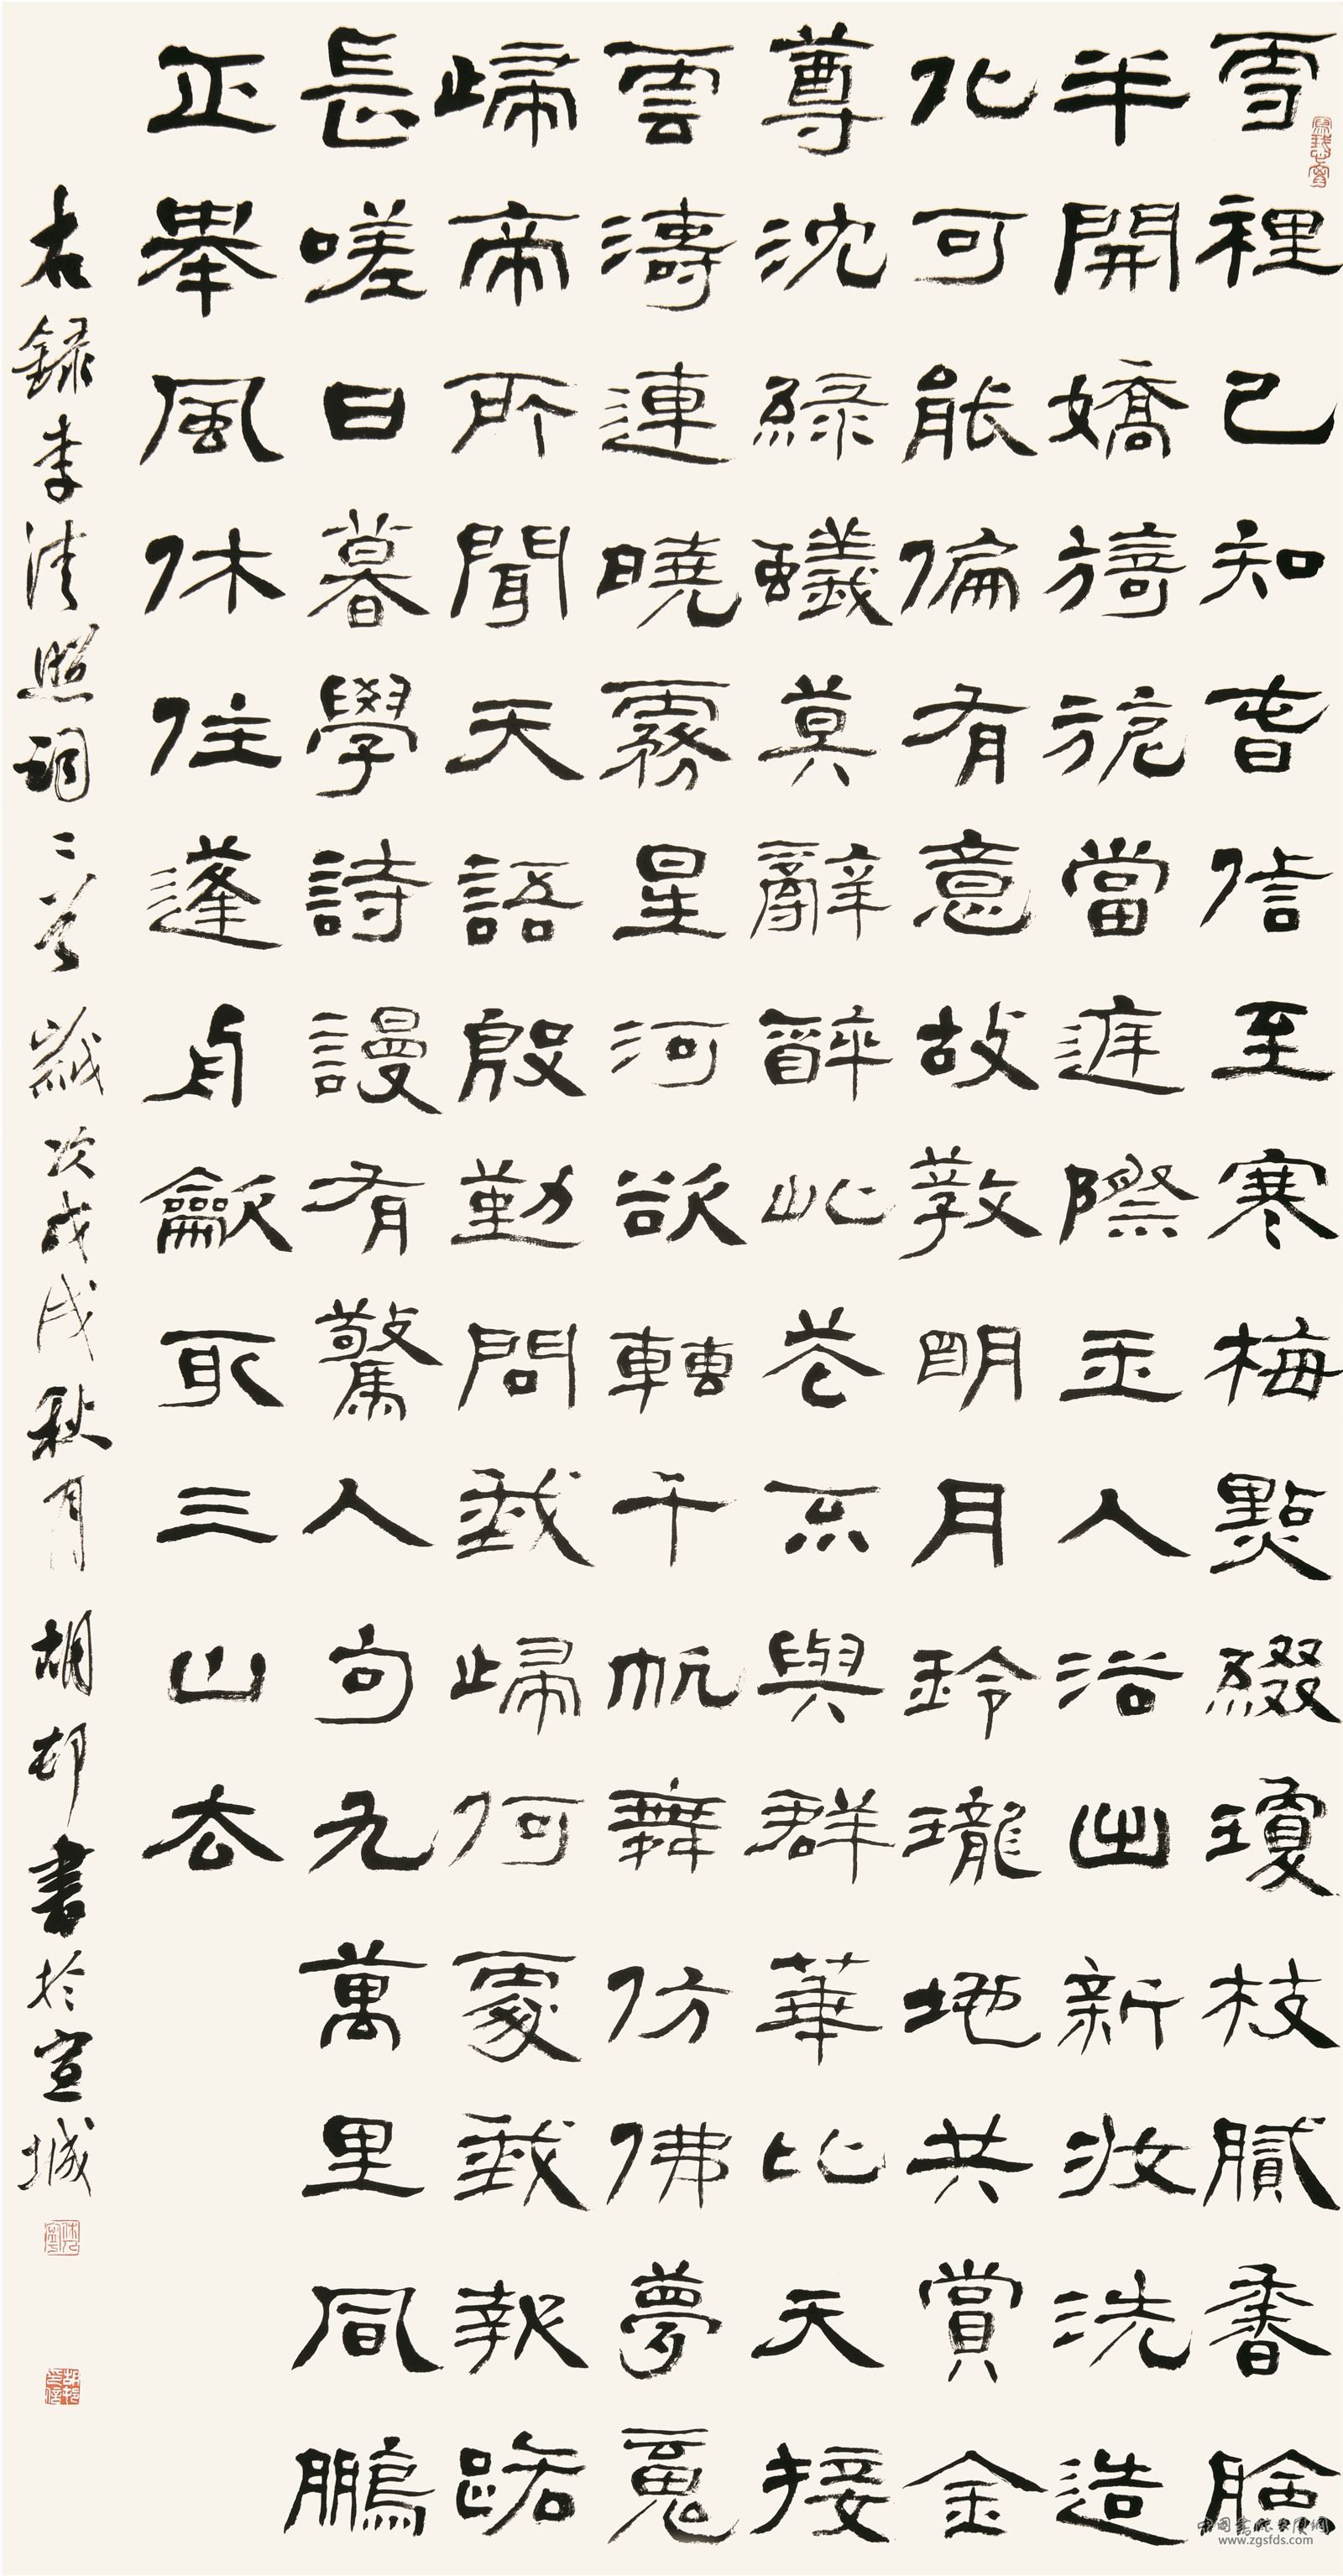 雪裡已知春信至寒梅點綴瓊枝膩香臉
半開嬌旖旎當庭際玉人浴出新妝洗造
化可能偏有意故教明月玲瓏地共賞金
尊沈綠蟻莫辭醉此花不與群華比天接
雲濤連曉霧星河欲轉千帆舞仿佛夢魂
歸帝所聞天語殷勤問我歸何處我報路
長嗟日暮學詩謾有驚人句九萬里風鵬
正舉風休住蓬舟龡取三山去
右録李清照詞二首歲次戊戌秋月胡邨書於宣城
www.zgsfds.com